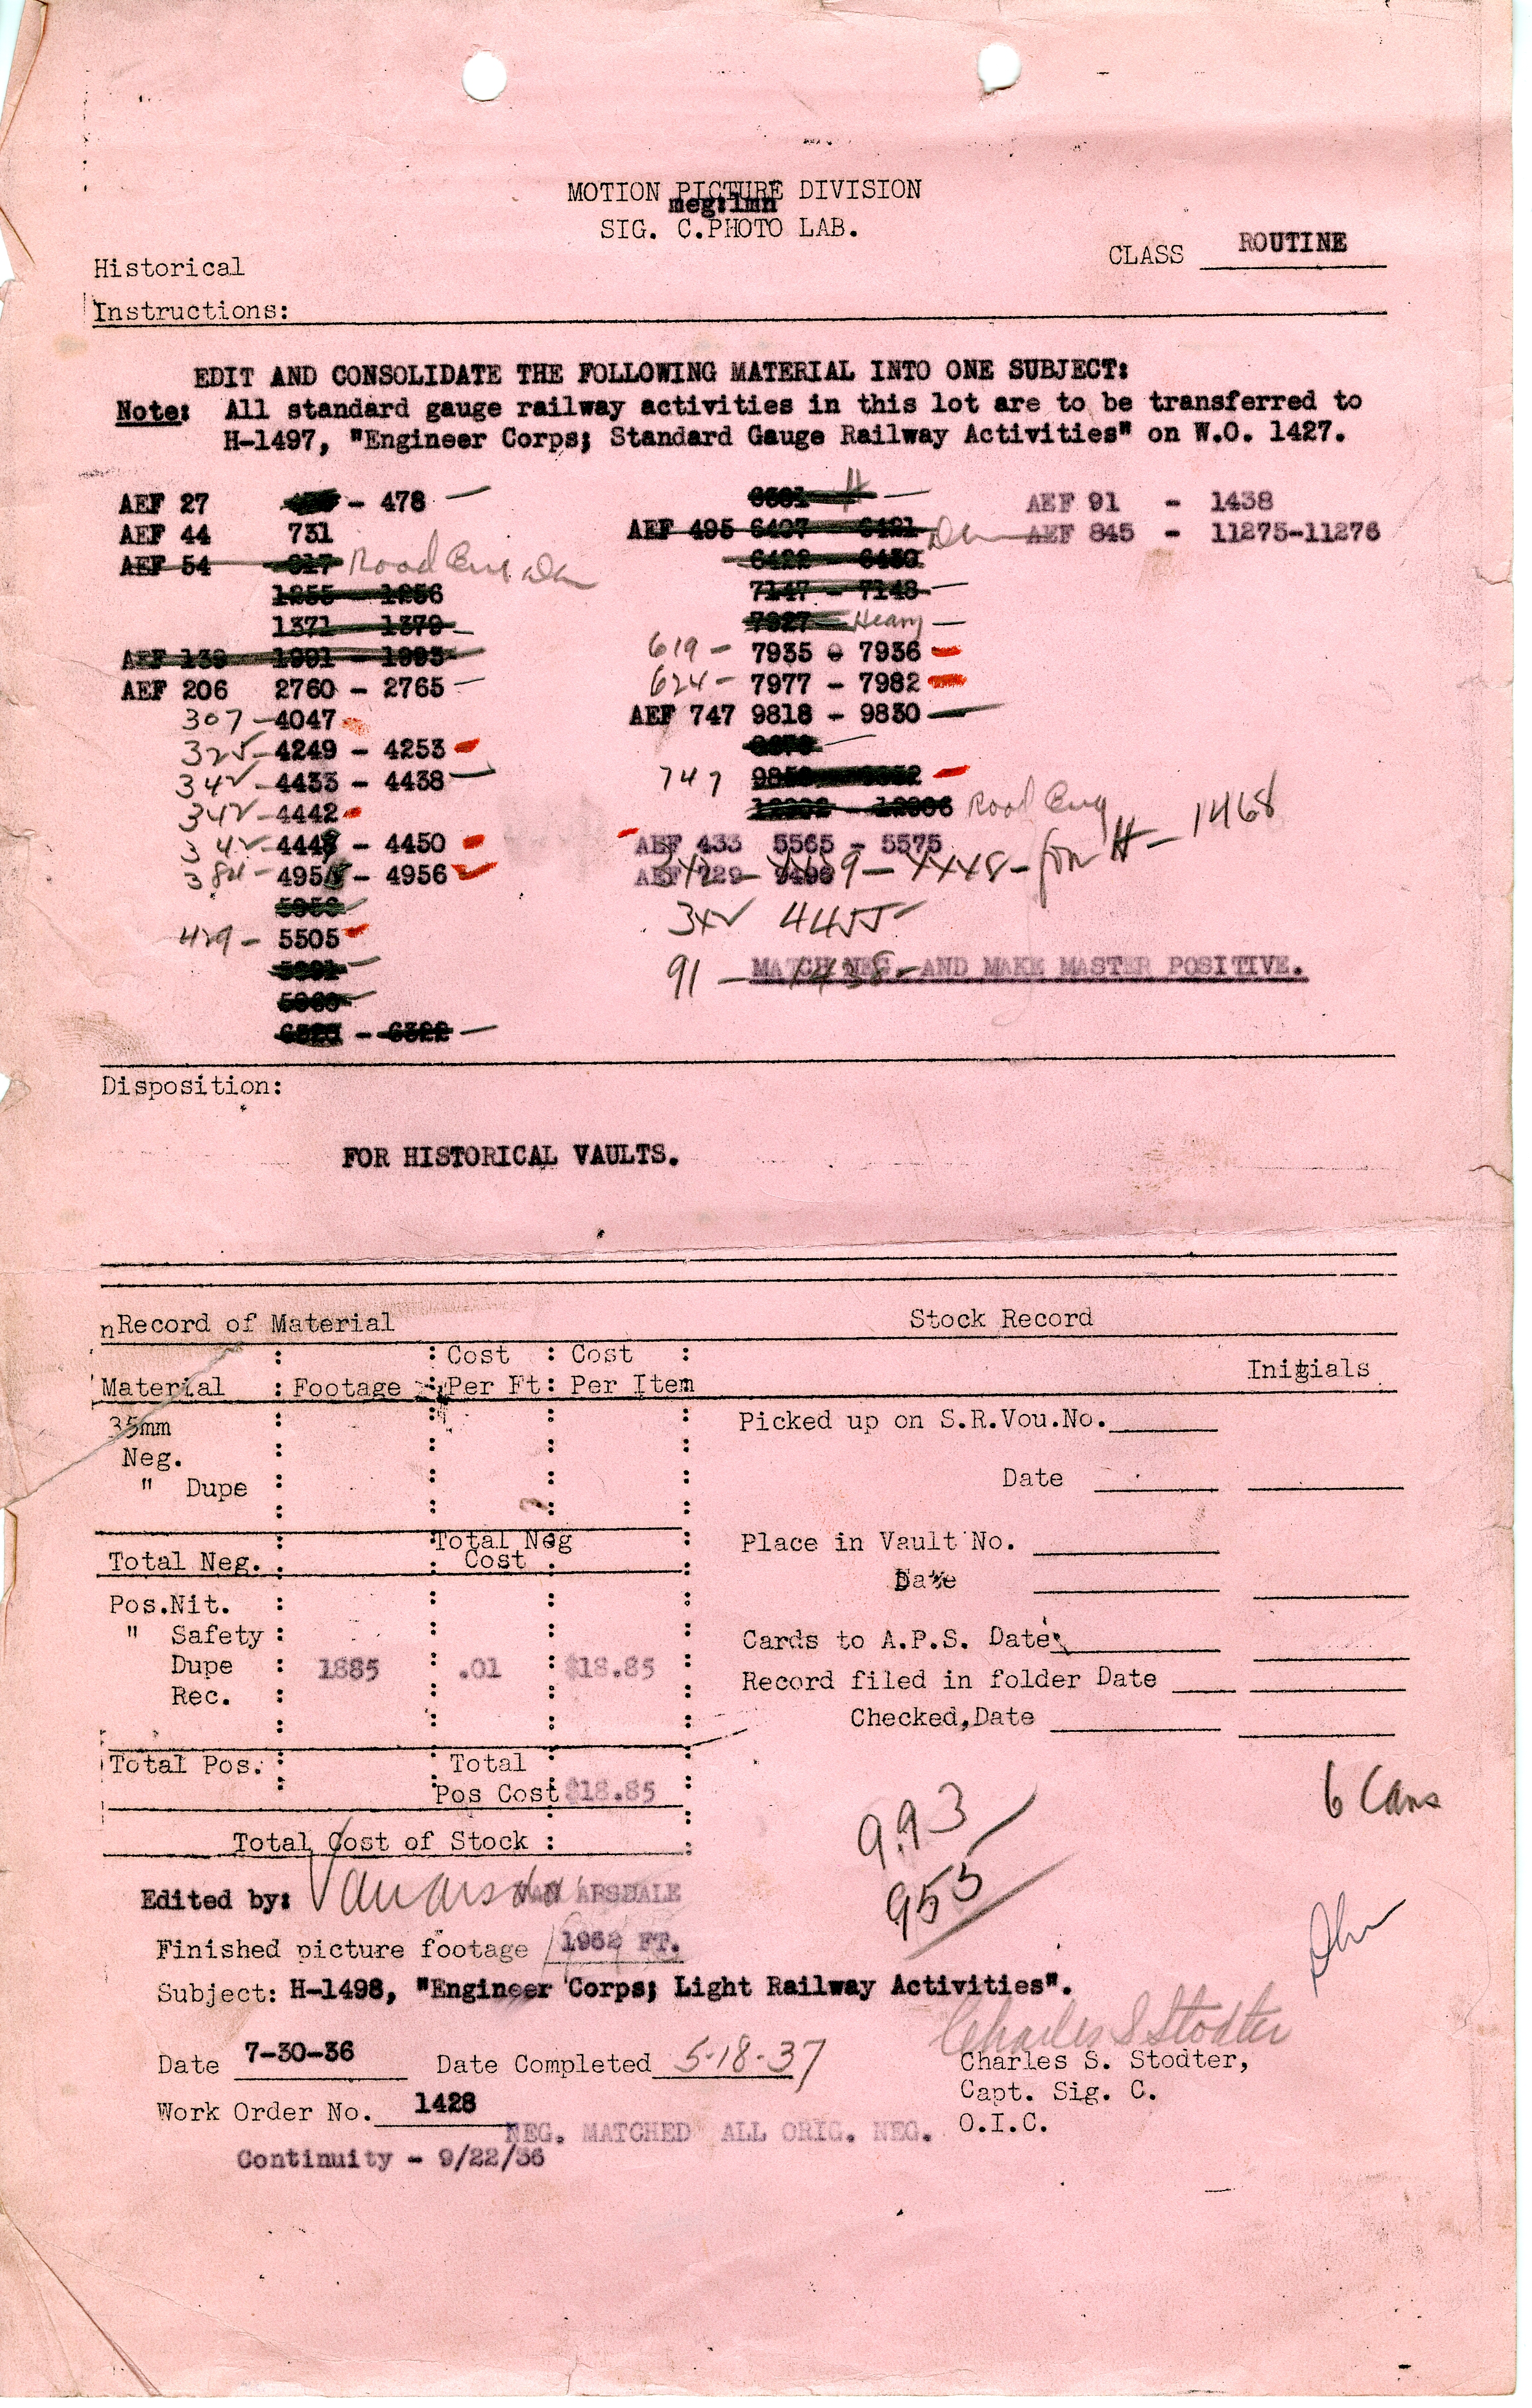 MOTION PICTURE DIVISION
meg:lmn
SIG. C.PHOTO LAB.
CLASS ROUTINE
Historical
Instructions:
EDIT AND CONSOLIDATE THE FOLLOWING MATERIAL INTO ONE SUBJECT:
Note: All standard gauge railway activities in this lot are to be transferred to
H-1497, "Engineer Corps; Standard Gauge Railway Activities" on W.O. 1427.
AEF 27 - 478
AEF 44 731
AEF 54 Road Eng.
1255 - 1256
1371 - 1379
AEF 139 1991 - 1993
AEF 206 2760 - 2765
307 - 4047
325 - 4249 - 4253
342 - 4433 - 4438
342 - 4442
342 - 4448 - 4450
384 - 4955 - 4956
429 - 5505
- 6322
AEF 495 6407 - 6421
6422 - 6430
7147 - 7148
7927 Heavy
619 - 7935 & 7936
624 - 7977 - 7982
AEF 747 9818 - 9830
747
Road Eng
AEF 433 5565 - 5575
AEF 729 - 9496
342 - 4449 - 4448 - for H - 1468
342 4455
91 - 1438 -
MATCH NEG. AND MAKE MASTER POSITIVE.
AEF 91 - 1438
AEF 845 - 11275-11276
Disposition:
FOR HISTORICAL VAULTS.
nRecord of Material
Stock Record
Material : Footage : Cost Per Ft : Cost Per Item :
Initials
35mm
Neg.
" Dupe
Total Neg. : Total Neg Cost
Pos.Nit. :
" Safety :
Dupe : 1885 : .01 : $18.85 :
Rec. :
Total Pos. : Total Pos Cost $18.85
Total Cost of Stock :
Picked up on S.R.Vou.No.
Date
Place in Vault No.
Date
Cards to A.P.S. Date
Record filed in folder Date
Checked,Date
6 Cans
993
955
Edited by: Vanarsdale VAN ARSDALE
Finished picture footage 1962 FT.
Subject: H-1498, "Engineer Corps; Light Railway Activities".
Charles S Stodter
Date 7-30-36 Date Completed 5-18-37
Charles S. Stodter,
Capt. Sig. C.
O.I.C.
Work Order No. 1428
NEG. MATCHED ALL ORIG. NEG.
Continuity - 9/22/36